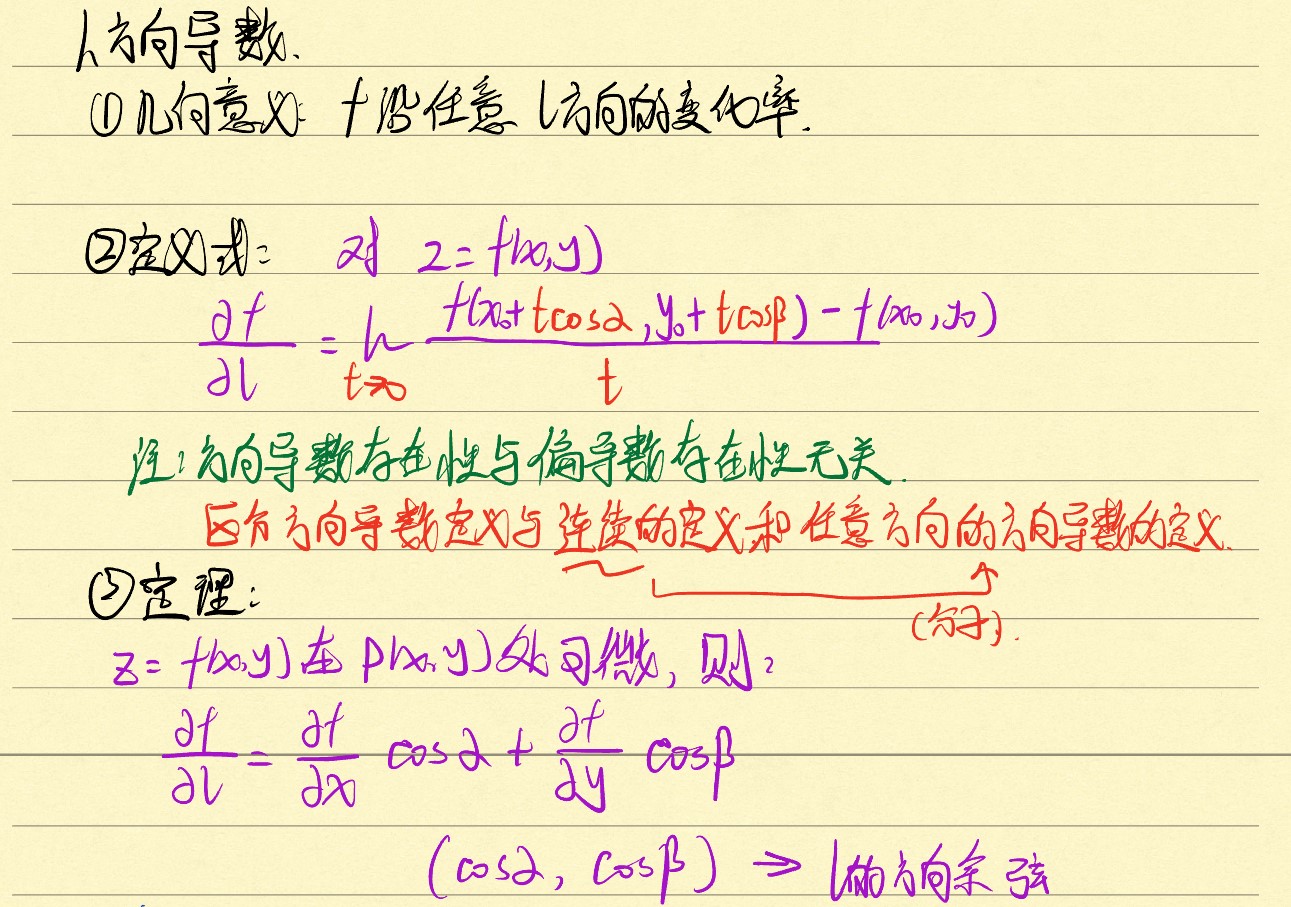 1、方向导数.
①几何意义: f沿任意 l方向的变化率.
②定义式: 对 z=f(x,y)
∂f/∂l = lim t→0 [f(x₀+tcosα, y₀+tcosβ) - f(x₀, y₀)]/t
注: 方向导数存在性与偏导数存在性无关.
区分方向导数定义与连续的定义和任意方向的方向导数的定义.
(分子).
③定理:
z=f(x,y)在P(x,y)处可微, 则:
∂f/∂l = ∂f/∂x cosα + ∂f/∂y cosβ
(cosα, cosβ) → l的方向余弦